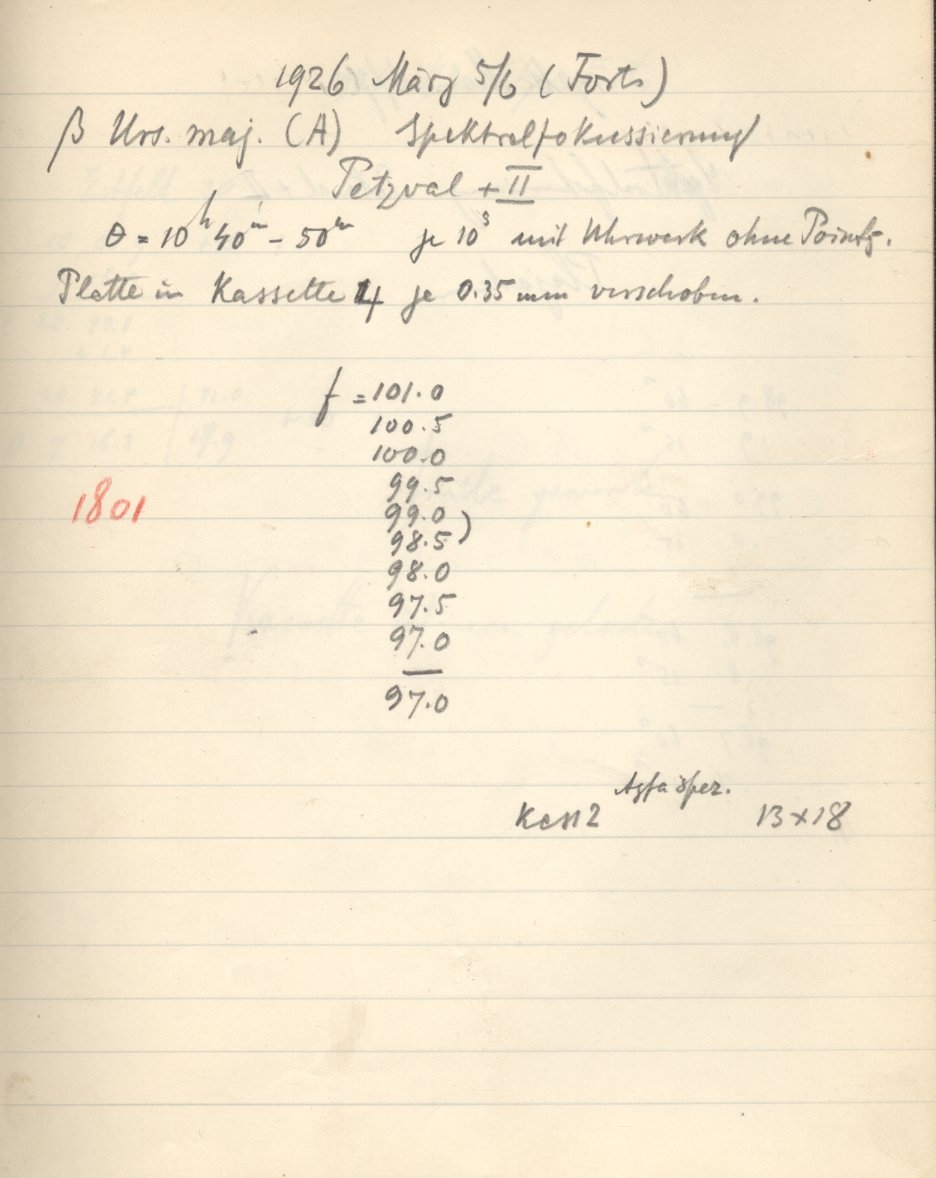 1926 März 5/6 (Forts)
β Urs. maj. (A) Spektralfokussierung
Petzval + II
θ = 10ʰ 40ᵐ - 50ᵐ je 10ˢ mit Uhrwerk ohne Pointg.
Platte in Kassette 4 je 0.35 mm verschoben.
f = 101.0
100.5
100.0
99.5
99.0
98.5)
98.0
97.5
97.0
97.0
1801
Agfa
Kass 2 13 x 18